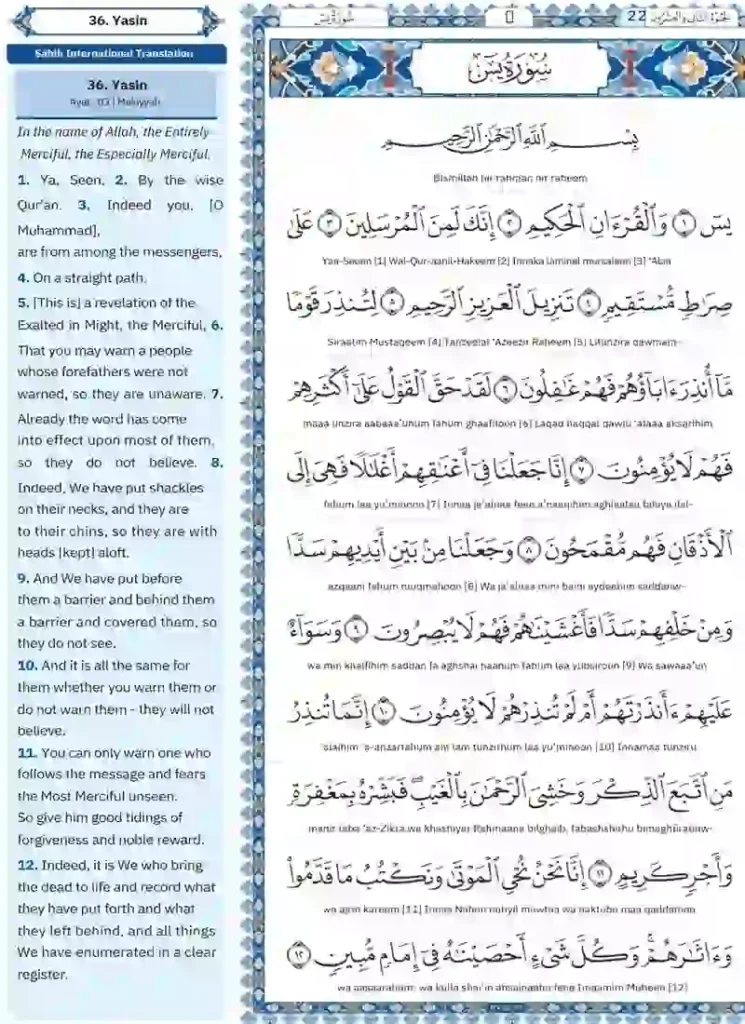 36. Yasin
Sahih International Translation
36. Yasin
Ayat: 83 | Makiyyah
In the name of Allah, the Entirely
Merciful, the Especially Merciful.
1. Ya, Seen, 2. By the wise
Qur'an. 3. Indeed you, [O
Muhammad],
are from among the messengers,
4. On a straight path.
5. [This is] a revelation of the
Exalted in Might, the Merciful, 6.
That you may warn a people
whose forefathers were not
warned, so they are unaware. 7.
Already the word has come
into effect upon most of them,
so they do not believe. 8.
Indeed, We have put shackles
on their necks, and they are
to their chins, so they are with
heads [kept] aloft.
9. And We have put before
them a barrier and behind them
a barrier and covered them, so
they do not see.
10. And it is all the same for
them whether you warn them or
do not warn them - they will not
believe.
11. You can only warn one who
follows the message and fears
the Most Merciful unseen.
So give him good tidings of
forgiveness and noble reward.
12. Indeed, it is We who bring
the dead to life and record what
they have put forth and what
they left behind, and all things
We have enumerated in a clear
register.
سُورَةُ يسٓ
22 الجزء الثاني والعشرون
سُورَةُ يسٓ
بِسْمِ ٱللَّهِ ٱلرَّحْمَٰنِ ٱلرَّحِيمِ
Bismillah hir rahman nir raheem
يسٓ ١ وَٱلْقُرْءَانِ ٱلْحَكِيمِ ٢ إِنَّكَ لَمِنَ ٱلْمُرْسَلِينَ ٣ عَلَىٰ
Yaa-Seeen [1] Wal-Qur-aanil-Hakeem [2] Innaka laminal mursaleen [3] 'Alaa
صِرَٰطٍ مُّسْتَقِيمٍ ٤ تَنزِيلَ ٱلْعَزِيزِ ٱلرَّحِيمِ ٥ لِتُنذِرَ قَوْمًا
Siraatim Mustaqeem [4] Tanzeelal 'Azeezir Raheem [5] Litunzira qawmam-
مَّآ أُنذِرَ ءَابَآؤُهُمْ فَهُمْ غَٰفِلُونَ ٦ لَقَدْ حَقَّ ٱلْقَوْلُ عَلَىٰٓ أَكْثَرِهِمْ
maaa unzira aabaaa'uhum fahum ghaafiloon [6] Laqad haqqal qawlu 'alaaa aksarihim
فَهُمْ لَا يُؤْمِنُونَ ٧ إِنَّا جَعَلْنَا فِىٓ أَعْنَٰقِهِمْ أَغْلَٰلًا فَهِىَ إِلَى
fahum laa yu'minoon [7] Innaa ja'alnaa feee a'naaqihim aghlaalan fahiya ilal-
ٱلْأَذْقَانِ فَهُم مُّقْمَحُونَ ٨ وَجَعَلْنَا مِنۢ بَيْنِ أَيْدِيهِمْ سَدًّا
azqaani fahum muqmahoon [8] Wa ja'alnaa mim baini aydeehim saddanw-
وَمِنْ خَلْفِهِمْ سَدًّا فَأَغْشَيْنَٰهُمْ فَهُمْ لَا يُبْصِرُونَ ٩ وَسَوَآءٌ
wa min khalfihim saddan fa aghshai naahum fahum laa yubsiroon [9] Wa sawaaa'un
عَلَيْهِمْ ءَأَنذَرْتَهُمْ أَمْ لَمْ تُنذِرْهُمْ لَا يُؤْمِنُونَ ١٠ إِنَّمَا تُنذِرُ
'alaihim 'a-anzartahum am lam tunzirhum laa yu'minoon [10] Innamaa tunziru
مَنِ ٱتَّبَعَ ٱلذِّكْرَ وَخَشِىَ ٱلرَّحْمَٰنَ بِٱلْغَيْبِ ۖ فَبَشِّرْهُ بِمَغْفِرَةٍ
manit taba 'az-Zikra wa khashiyar Rahmaana bilghaib, fabashshirhu bimaghfiratinw-
وَأَجْرٍ كَرِيمٍ ١١ إِنَّا نَحْنُ نُحْىِ ٱلْمَوْتَىٰ وَنَكْتُبُ مَا قَدَّمُوا۟
wa ajrin kareem [11] Innaa Nahnu nuhyil mawtaa wa naktubu maa qaddamoo
وَءَاثَٰرَهُمْ ۚ وَكُلَّ شَىْءٍ أَحْصَيْنَٰهُ فِىٓ إِمَامٍ مُّبِينٍ ١٢
wa aasaarahum; wa kulla shai'in ahsainaahu feee Imaamim Mubeen [12]